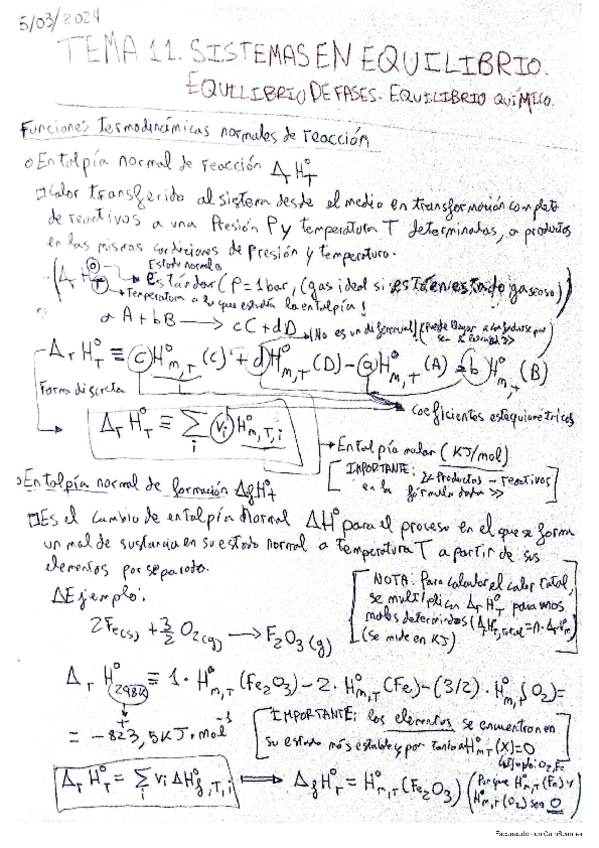 5/03/2024
TEMA 11. SISTEMAS EN EQUILIBRIO.
EQUILIBRIO DE FASES. EQUILIBRIO QUÍMICO.
Funciones termodinámicas normales de reacción
Entalpía normal de reacción ΔrH°T
Calor transferido al sistema desde el medio en transformación completa
de reactivos a una Presión P y temperatura T determinadas, a productos
en las mismas condiciones de presión y temperatura.
Estado normal o
(ΔrH°T estándar (P=1bar, (gas ideal si es gaseoso))
Temperatura a la que estudia la entalpía
aA + bB → cC + dD
(No es un diferencial)
ΔrH°T ≡ cH°m,T (C) + dH°m,T (D) − aH°m,T (A) − bH°m,T (B)
Forma discreta
coeficientes estequiométricos
ΔrH°T ≡ Σi νi H°m,T,i
Entalpía molar (KJ/mol)
[IMPORTANTE: << Productos − reactivos
en la fórmula dada >>]
Entalpía normal de formación ΔfH°T
Es el cambio de entalpía normal ΔH° para el proceso en el que se forma
un mol de sustancia en su estado normal a temperatura T a partir de sus
elementos por separado.
ΔEjemplo:
[NOTA: Para calcular el calor total,
se multiplica ΔrH°T para unos
moles determinados (ΔrH°T,total = n·ΔrH°m)
(se mide en KJ)]
2Fe(s) + 3/2 O2(g) → F2O3(g)
ΔrH°298K ≡ 1·H°m,T (Fe2O3) − 2·H°m,T (Fe) − (3/2)·H°m,T (O2) =
= −823,5 KJ·mol⁻¹
[IMPORTANTE: los elementos se encuentran en
su estado más estable y por tanto H°m,T (X)=0
O2, Fe]
ΔrH°T = Σi νi ΔH°f,T,i ⟹ ΔfH°T = H°m,T (Fe2O3) (Porque H°m,T (Fe) y
H°m,T (O2) son 0)